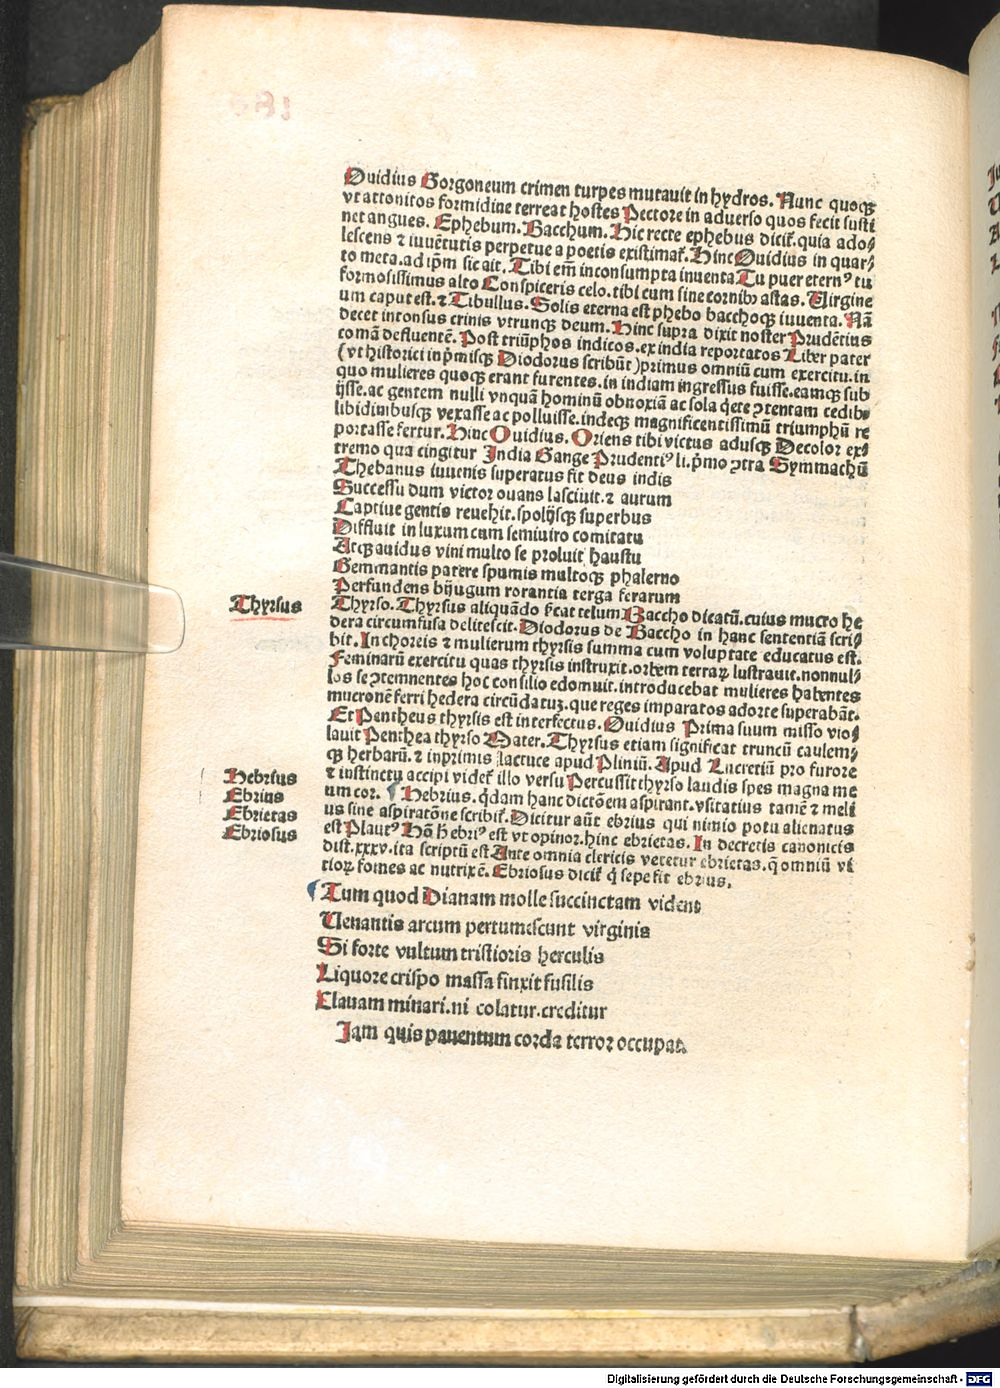 Ouidius Gorgoneum crimen turpes mutauit in hydros. Nunc quoqꝫ
vt attonitos formidine terreat hostes Pectore in aduerso quos fecit susti
net angues. Ephebum. Bacchum. Hic recte ephebus dicit᷑. quia ado⸗
lescens ⁊ iuuētutis perpetue a poetis existimat᷑. Hinc Ouidius in quar⸗
to meta. ad ip̄m sic ait. Tibi em̄ inconsumpta iuuenta Tu puer etern⁹ tu
formosissimus alto Conspiceris celo. tibi cum sine cornibꝰ astas. Uirgine
um caput est. ⁊ Tibullus. Solis eterna est phebo bacchoqꝫ iuuenta. Nā
decet intonsus crinis vtrunqꝫ deum. Hinc supra dixit noster Prudētius
comā defluentē. Post triūphos indicos. ex india reportatos Liber pater
(vt historici inp̄misqꝫ Diodorus scribūt) primus omniū cum exercitu. in
quo mulieres quoqꝫ erant furentes. in indiam ingressus fuisse. eamqꝫ sub
ijsse. ac gentem nulli vnquā hominū obnoxiā ac sola q̇ete ꝯtentam cedibꝰ
libidinibusqꝫ vexasse ac polluisse. indeqꝫ magnificentissimū triumphū re
portasse fertur. Hinc Ouidius. Oriens tibi victus adusqꝫ Decolor ex⸗
tremo qua cingitur India Gange Prudenti⁹ li. p̄mo ꝯtra Symmachū
Thebanus iuuenis superatus fit deus indis
Successu dum victor ouans lasciuit. ⁊ aurum
Captiue gentis reuehit. spolijsqꝫ superbus
Diffluit in luxum cum semiuiro comitatu
Atqꝫ auidus vini multo se proluit haustu
Gemmantis patere spumis multoqꝫ phalerno
Perfundens bijugum rorantia terga ferarum
Thyrsus
Thyrso. Thyrsus aliquādo s̄icat telum Baccho dicatū. cuius mucro he
dera circumfusa delitescit. Diodorus de Baccho in hanc sententiā scri⸗
bit. In choreis ⁊ mulierum thyrsis summa cum voluptate educatus est.
Feminarū exercitu quas thyrsis instruxit. orbem terraꝝ lustrauit. nonnul⸗
los se ꝯtemnentes hoc consilio edomuit. introducebat mulieres habentes
mucronē ferri hedera circūdatuꝫ. que reges imparatos adorte superabāt.
Et Pentheus thyrsis est interfectus. Ouidius Prima suum misso vio⸗
lauit Penthea thyrso Mater. Thyrsus etiam significat truncū caulem⸗
qꝫ herbarū. ⁊ inprimis lactuce apud Pliniū. Apud Lucretiū pro furore
⁊ instinctu accipi videt᷑ illo versu Percussit thyrso laudis spes magna me
um cor. ¶ Hebrius. q̇dam hanc dictōem aspirant. vsitatius tamē ⁊ meli
us sine aspiratōne scribit᷑. Dicitur aūt ebrius qui nimio potu alienatus
est Plaut⁹ Hā h̄ ebri⁹ est vt opinor. hinc ebrietas. In decretis canonicis
dist. xxxv. ita scriptū est Ante omnia clericis vetetur ebrietas. q̄ omniū vi
tioꝝ fomes ac nutrix ē. Ebriosus dicit᷑ q̇ sepe fit ebrius.
Hebrius
Ebrius
Ebrietas
Ebriosus
¶ Tum quod Dianam molle succinctam videns
Uenantis arcum pertumescunt virginis
Si forte vultum tristioris herculis
Liquore crispo massa finxit fusilis
Clauam minari. ni colatur. creditur
Jam quis pauentum corda terror occupat
Digitalisierung gefördert durch die Deutsche Forschungsgemeinschaft - DFG